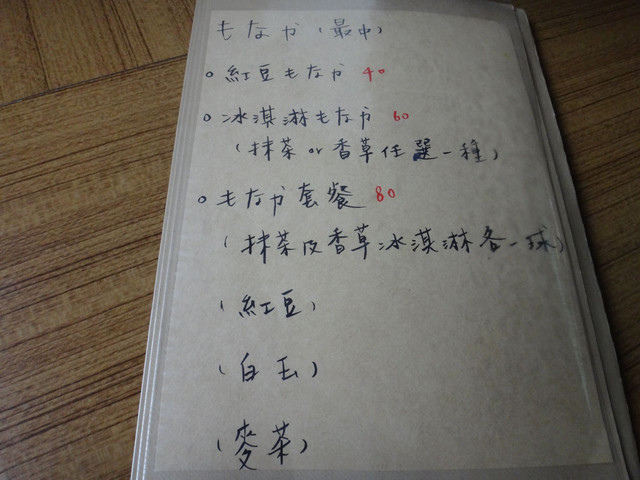 もなか(最中)
○紅豆もなか 40
○冰淇淋もなか 60
(抹茶or香草任選一種)
○もなか套餐 80
(抹茶及香草冰淇淋各一球)
(紅豆)
(白玉)
(麥茶)